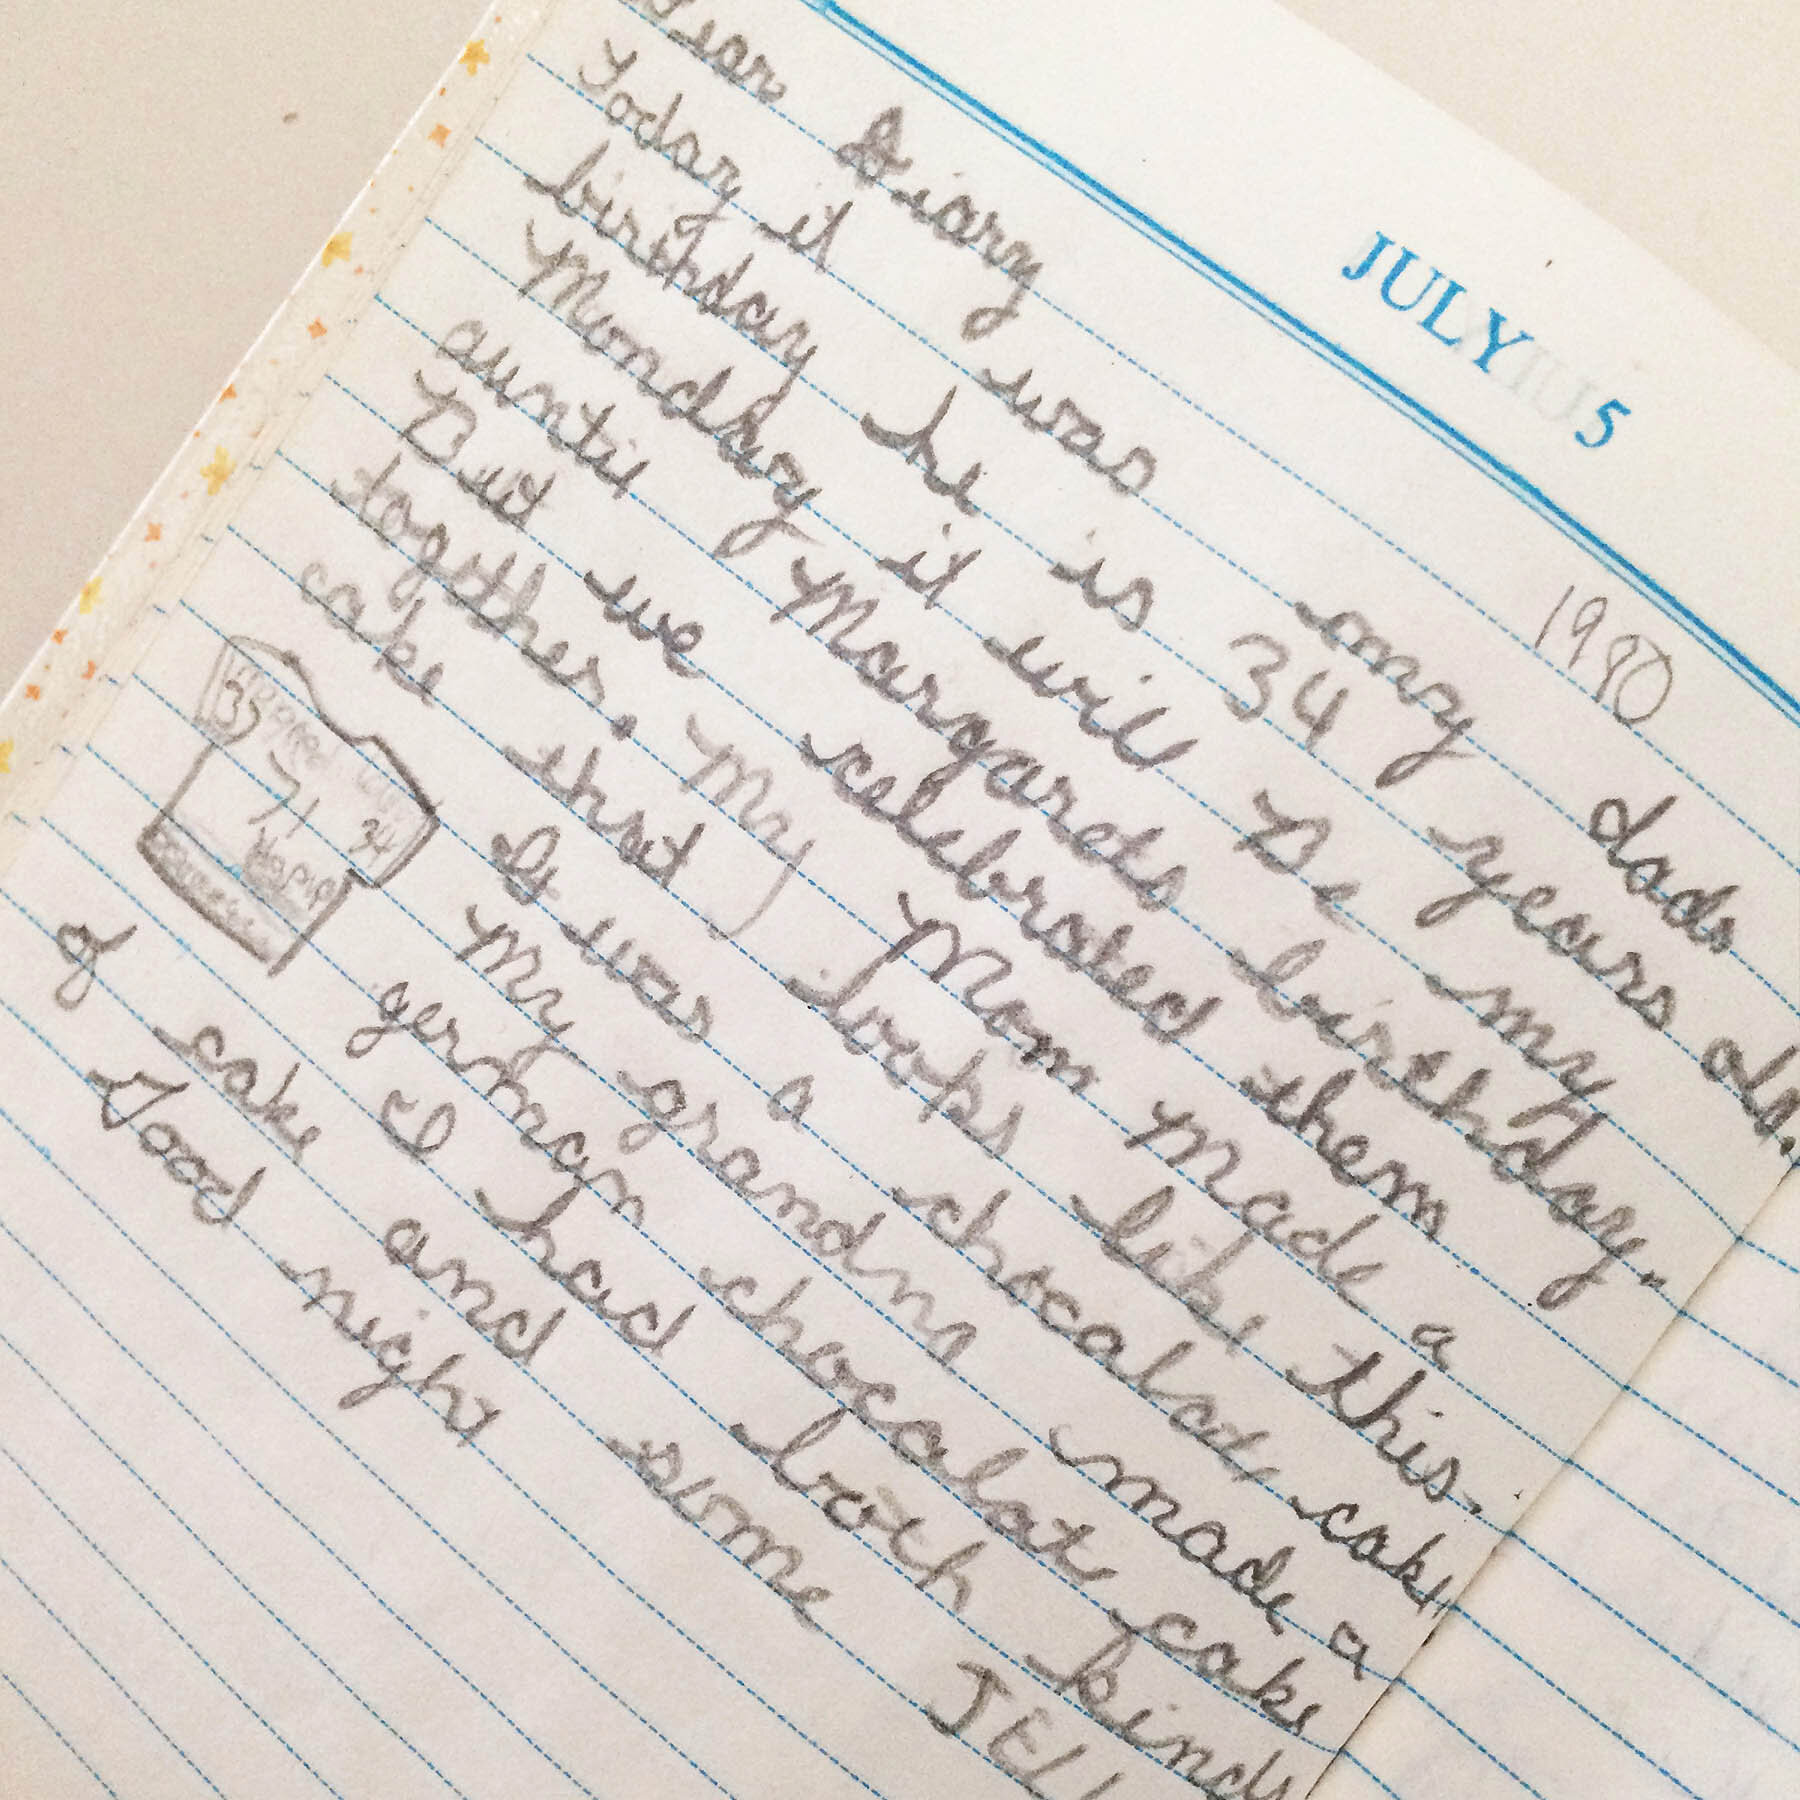 JULY 5
1990
Dear Diary
Today it was my dads
birthday he is 34 years old.
Monday it will Be my
auntie Margarets birthday.
But we celebrated them
together. My Mom Made a
cake that looks like this.
It was a chocolat cake
My grandma made a
german chocolat cake
I had both kinds
of cake and some JELL
Good night
35
71
34